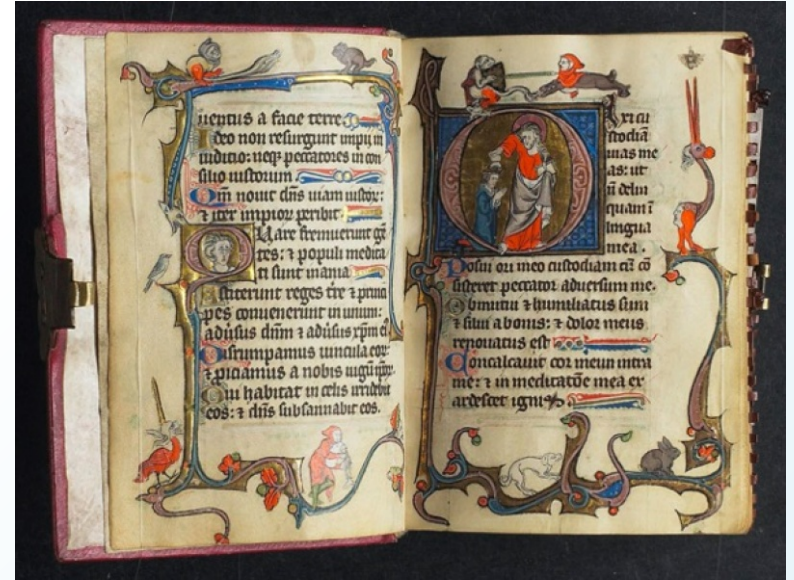 uentus a facie terre
Ideo non resurgunt impij in
iuditio: neqz peccatores in con
silio iustorum
Qm̄ nouit dn̄s uiam iustoꝝ:
⁊ iter impioꝝ peribit
Quare fremuerunt gē
tes: ⁊ populi medita
ti sunt inania
Astiterunt reges tr̄e ⁊ princi
pes conuenerunt in unum:
adūsus dn̄m ⁊ adūsus xp̄m ei᷒
Disrumpamus uincula eoꝝ:
⁊ piciamus a nobis iugū
Qui habitat in celis irridebit
eos: ⁊ dn̄s subsannabit eos.
Dixi cu
stodiā
uias me
as: ut
nō delin
quam ī
lingua
mea.
Posui ori meo custodiam cū cō
sisteret peccator aduersum me.
Obmutui ⁊ humiliatus sum
⁊ silui a bonis: ⁊ dolor meus
renouatus est
Concalcauit cor meum intra
me: ⁊ in meditatōe mea ex
ardescet ignis